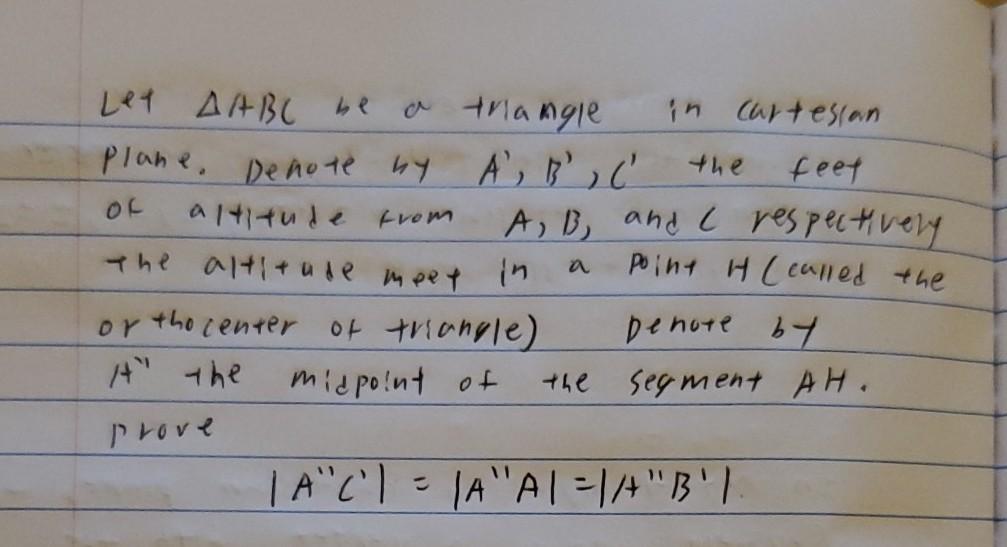 Let ΔABC be a triangle in Cartesian
Plane. Denote by A', B', C' the feet
of altitude from A, B, and C respectively
The altitude meet in a point H (called the
orthocenter of triangle) Denote by
A" the midpoint of the segment AH.
prove
|A"C'| = |A"A| = |A"B'|.